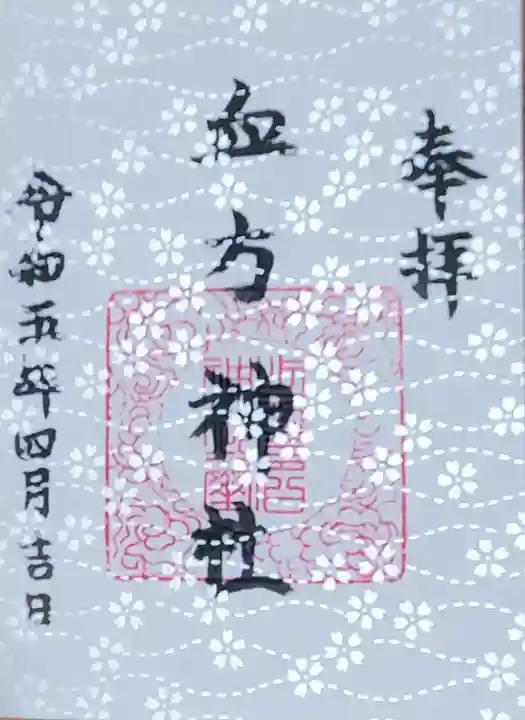 奉拝
血方神社
令和五年四月吉日